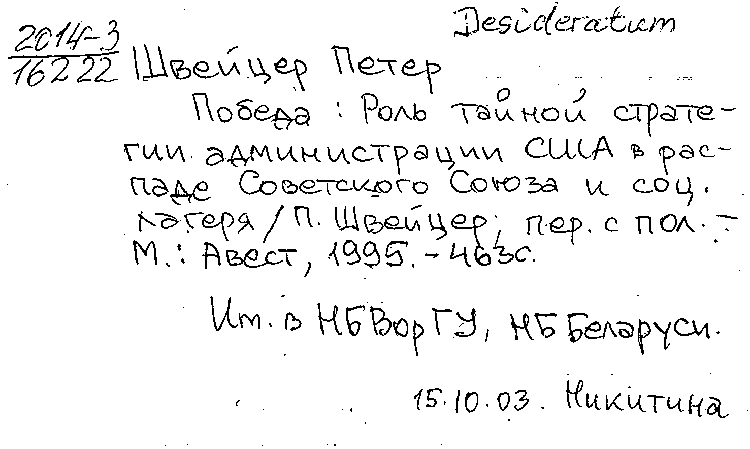 Desideratum
2014-3
16222
Швейцер Петер
Победа : Роль тайной страте-
гии администрации США в рас-
паде Советского Союза и соц.
лагеря / П. Швейцер; пер. с пол. -
М.: Авест, 1995. - 463с.
Им. в НБ ВорГУ, НБ Беларуси.
15.10.03. Никитина